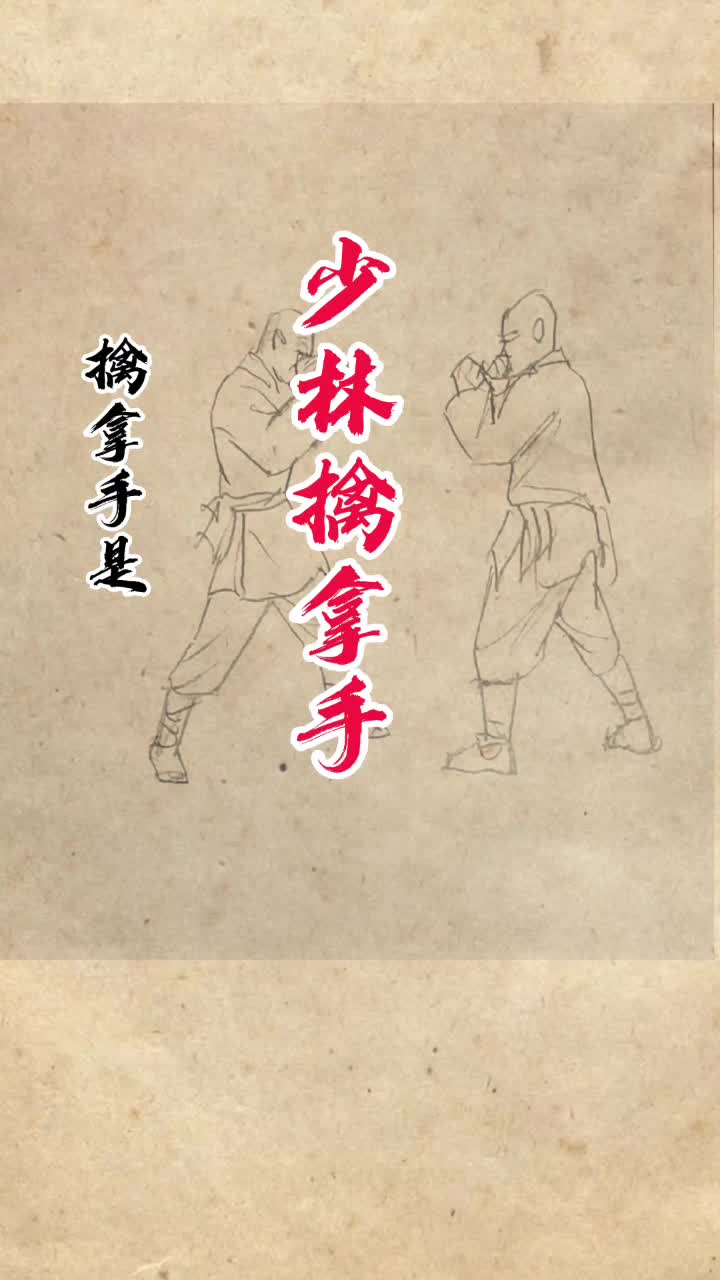 少林擒拿手
擒拿手是